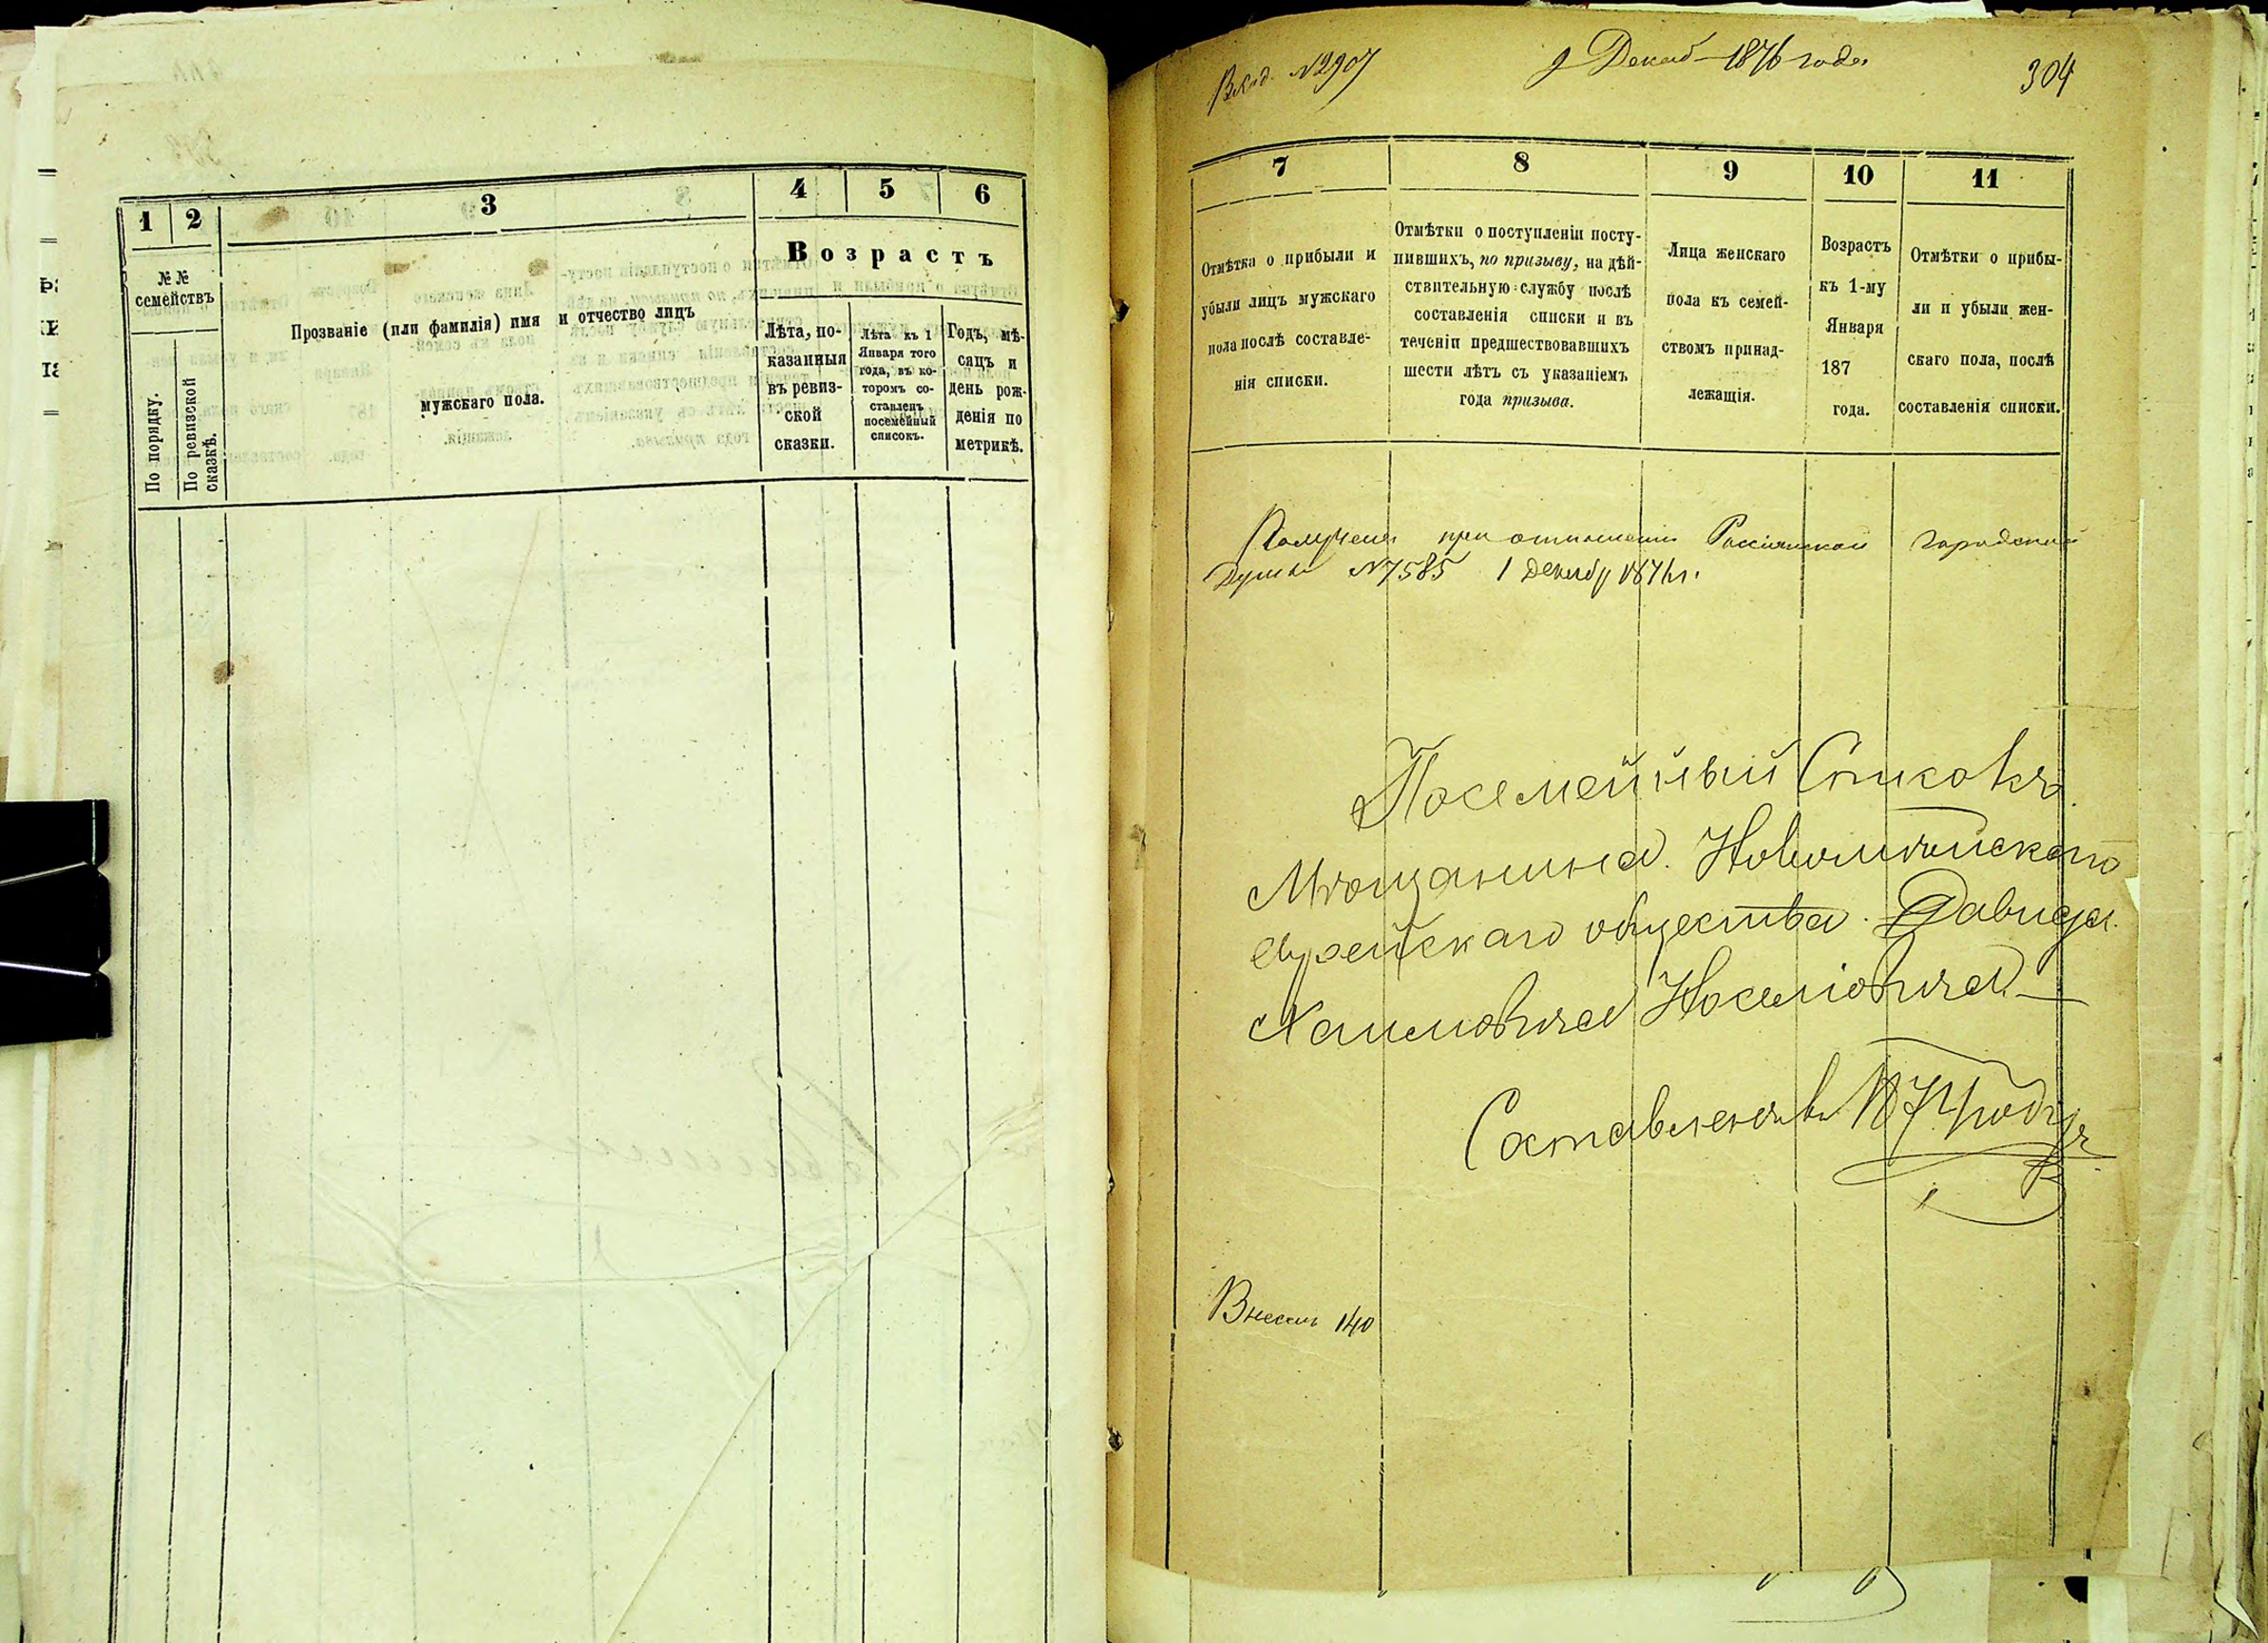 1 2 3 4 5 6
Возрастъ
№№
семействъ
По порядку.
По ревизской
сказкѣ.
Прозваніе (или фамилія) имя и отчество лицъ
мужскаго пола.
Лѣта, по-
казанныя
въ ревиз-
ской
сказки.
Лѣта къ 1
Января того
года, въ ко-
торомъ со-
ставленъ
посемейный
списокъ.
Годъ, мѣ-
сяцъ и
день рож-
денія по
метрикѣ.
Вход. №2907
9 Декаб 1876 года
304
7 8 9 10 11
Отмѣтка о прибыли и
убыли лицъ мужскаго
пола послѣ составле-
нія списки.
Отмѣтки о поступленіи посту-
пившихъ, по призыву, на дѣй-
ствительную службу послѣ
составленія списки и въ
теченіи предшествовавшихъ
шести лѣтъ съ указаніемъ
года призыва.
Лица женскаго
пола къ семей-
ствомъ принад-
лежащія.
Возрастъ
къ 1-му
Января
187
года.
Отмѣтки о прибы-
ли и убыли жен-
скаго пола, послѣ
составленія списки.
при отношеніи Россіенской Городской
Думы №7585 1 Декабр 1876 г.
Посемейный Списокъ
Мѣщанина Новомѣстскаго
Еврейскаго общества Давида
Хаимовича
Составленъ въ
140